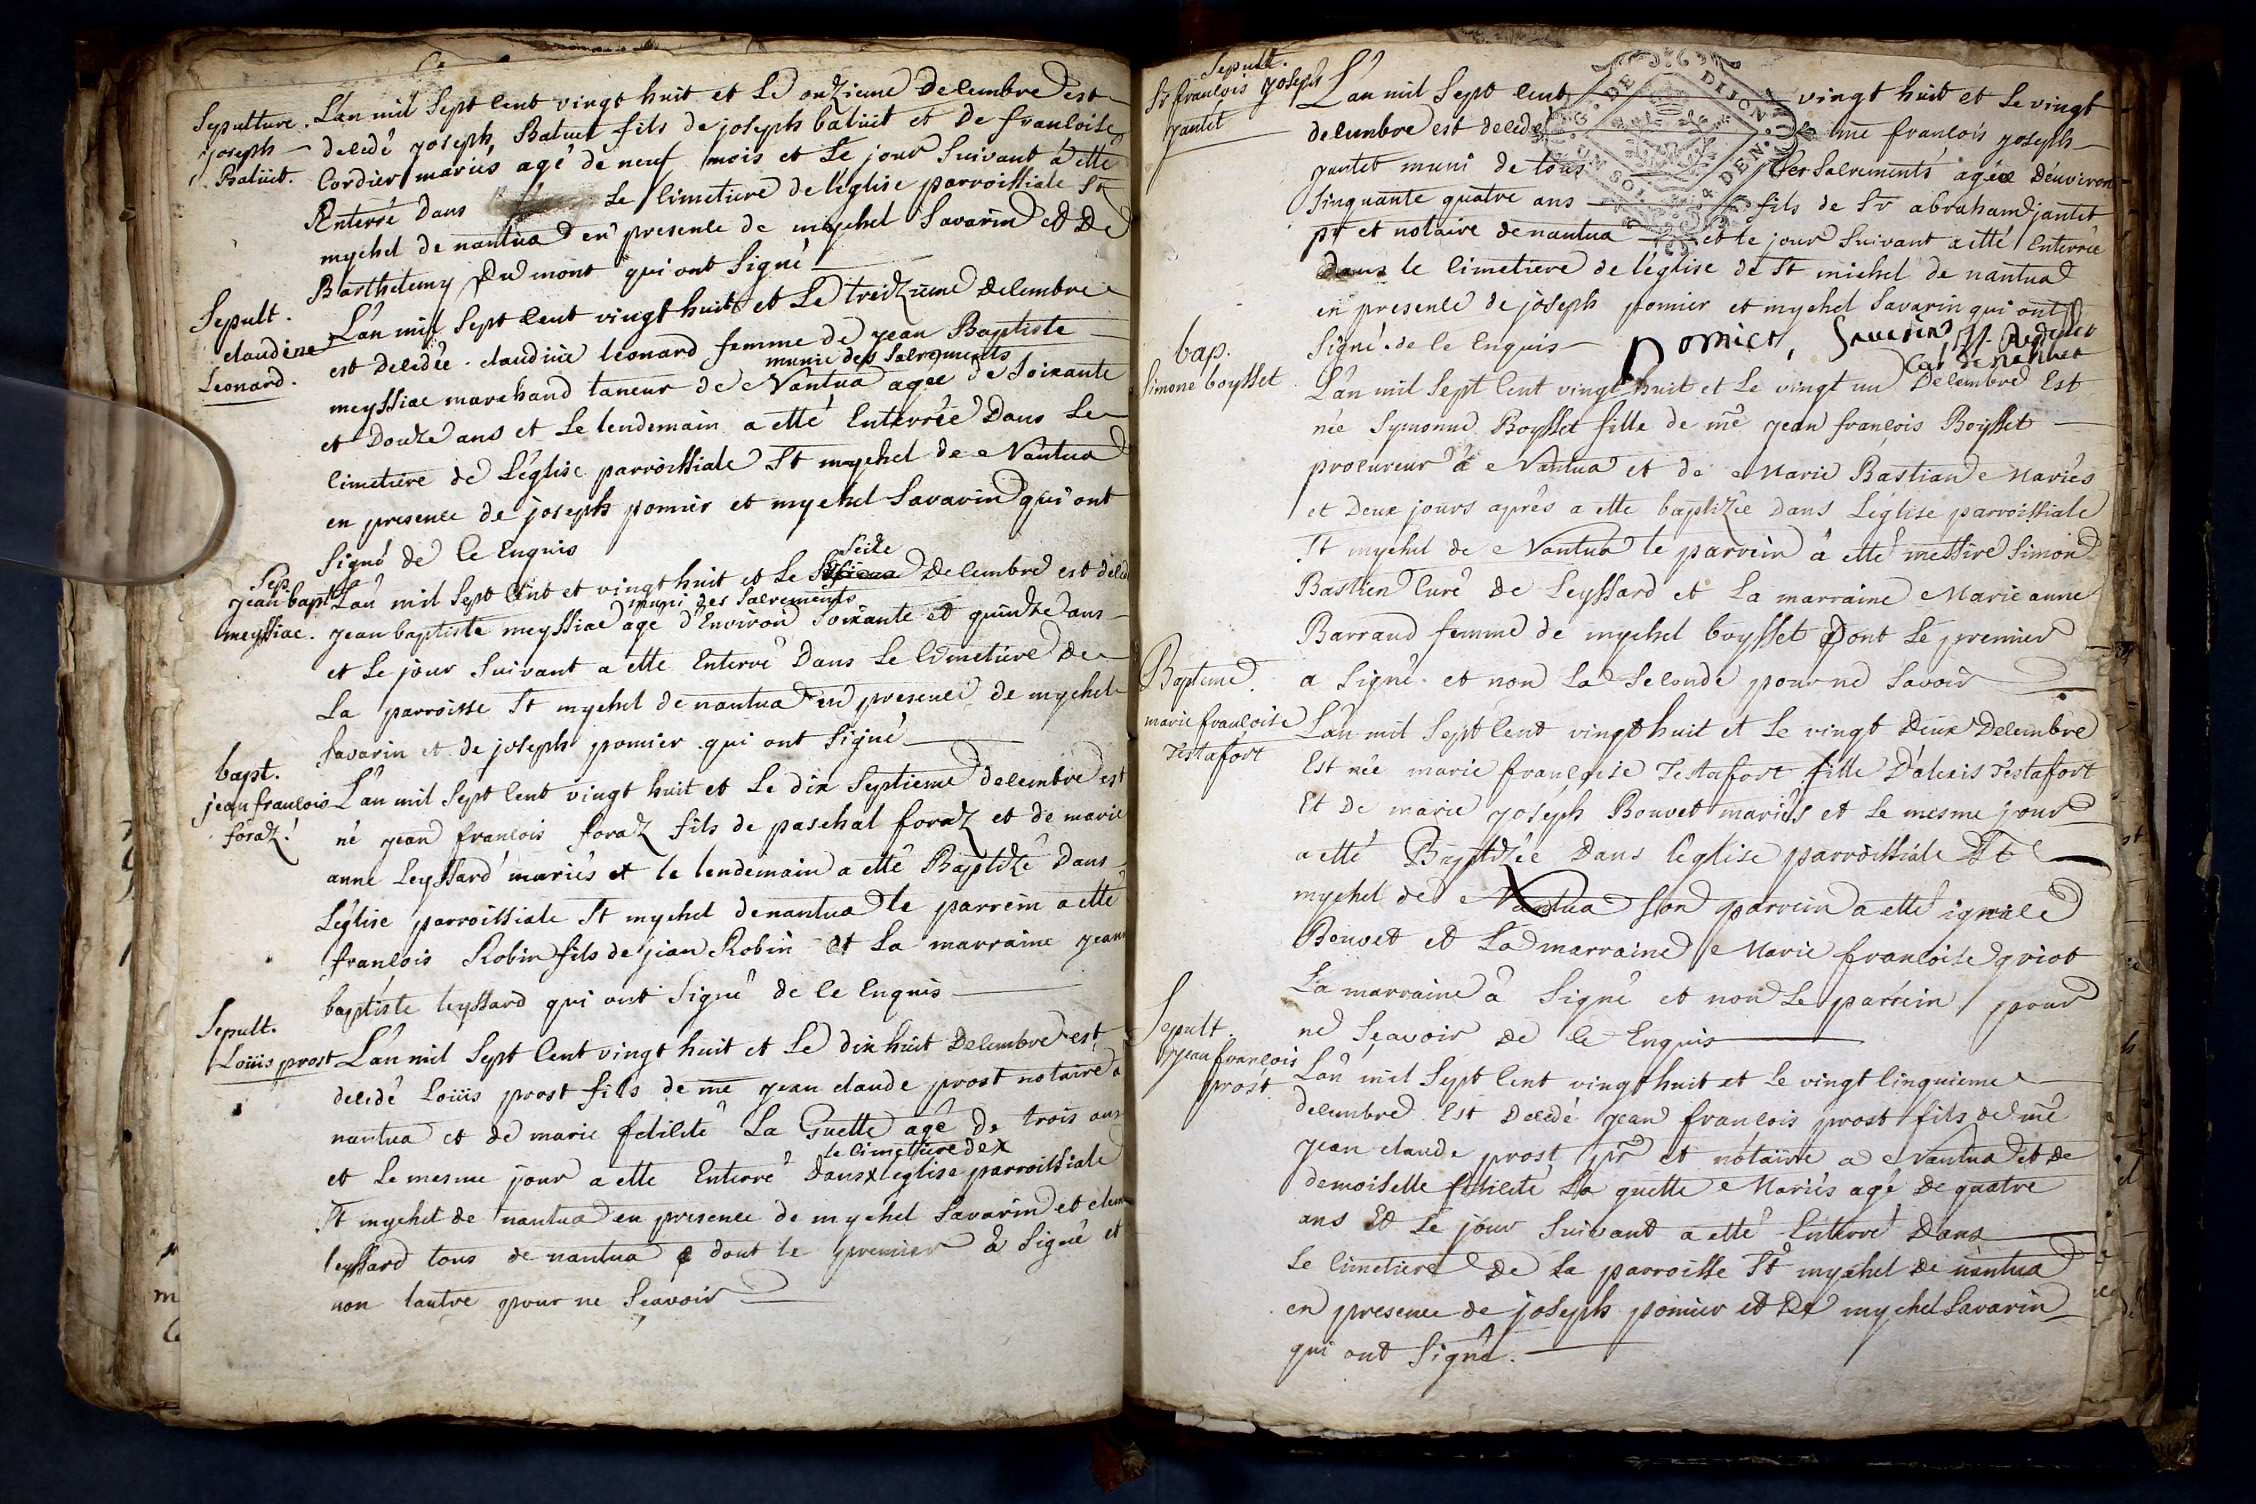 Sepulture. L'an mil Sept Cent vingt huit et Le onzieme Decembre est
joseph decedé joseph Baluët fils de joseph balüit et De francoise
Balüet. Cordier mariés agé de neuf mois et Le jour Suivant a etté
Enterré Dans Le Cimetiere de l'église parroissiale St
mychel de nantua en presence de mychel Savarin et De
Barthelemy Du mont qui ont Signé
Sepult.
claudine L'an mil Sept Cent vingt huit et Le treizieme Decembre
Leonard. est Decedée claudine leonard femme de jean Baptiste
munie des Sacrements
meyssiac marchand taneur de Nantua agée de Soixante
et Douze ans et Le lendemain a etté Enterrée Dans Le
Cimetiere de L'église parroissiale St mychel de Nantua
en presence de joseph pomier et mychel Savarin qui ont
Signé de Ce Enquis
Sep. Seize
jean bapt. L'an mil Sept Cent et vingt huit et Le Decembre est décé
muni des Sacrements
meyssiac. jean baptiste meyssiac agé d'Environ Soixante et quinze ans
et Le jour Suivant a etté Enterré Dans Le Cimetiere de
La parroisse St mychel de nantua en presence de mychel
Savarin et de joseph pomier qui ont Signé
bapt.
jean francois L'an mil Sept Cent vingt huit et Le dix Septieme decembre est
foraz. né jean francois foraz fils de paschal foraz et de marie
anne Leyssard mariés et le lendemain a etté Baptizé Dans
L'église parroissiale St mychel de nantua le parrein a etté
francois Robin fils de jean Robin et La marraine jeane
baptiste leyssard qui ont Signé de Ce Enquis
Sepult.
Loüis prost L'an mil Sept Cent vingt huit et Le dix huit Decembre est
decedé Loüis prost fils de me jean claude prost notaire a
nantua et de marie felicité La Guette agé de trois ans
le cimetiere de x
et Le mesme jour a etté Enterré Dans x l'eglise parroissiale
St mychel de nantua en presence de mychel Savarin et
leyssard tous de nantua dont le premier a Signé et
non lautre pour ne Sçavoir
Sepult.
Sr francois joseph L'an mil Sept Cent vingt huit et Le vingt
jantet decembre est decedé me francois joseph
jantet muni de tous Les Sacrements agée D'environ
Sinquante quatre ans fils de Sr abraham jantet
pr et notaire de nantua et le jour Suivant a etté Enterrée
Dans le Cimetiere de l'église de St michel de nantua
en presence de joseph pomier et mychel Savarin qui ont
Signé de Ce Enquis pomier, Savarin,
bap. Curé de nantua
Simone boysset L'an mil Sept Cent vingt huit et Le vingt un Decembre Est
née Symonne Boysset fille de me jean francois Boysset
procureur a Nantua et de Marie Bastian Mariés
et Deux jours aprés a etté baptizée dans L'église parroissiale
St mychel de Nantua le parrein a etté messire Simon
Bastien Curé de Leyssard et La marraine Marie anne
Barraud femme de mychel boysset Dont Le premier
a Signé et non La Seconde pour ne Savoir
Bapteme.
marie francoise L'an mil Sept Cent vingt huit et Le vingt Deux Decembre
Testafort Est née marie francoise Testafort fille D'alexis Testafort
Et De marie joseph Bouvet mariés et Le mesme jour
a etté Baptizée Dans l'eglise parroissiale St
mychel de Nantua Son parrein a etté ignace
Bouvet et La marraine Marie francoise griot
La marraine a Signé et non Le parrein pour
ne Sçavoir de Ce Enquis
Sepult.
jean francois L'an mil Sept Cent vingt huit et Le vingt Cinquieme
prost. decembre Est Decedé jean francois prost fils de me
jean claude prost pr et notaire a Nantua et de
demoiselle felicité La guette Mariés agé De quatre
ans Et Le jour Suivant a etté Enterré Dans
Le Cimetiere De La parroisse St mychel De nantua
en presence de joseph pomier et De mychel Savarin
qui ont Signé.